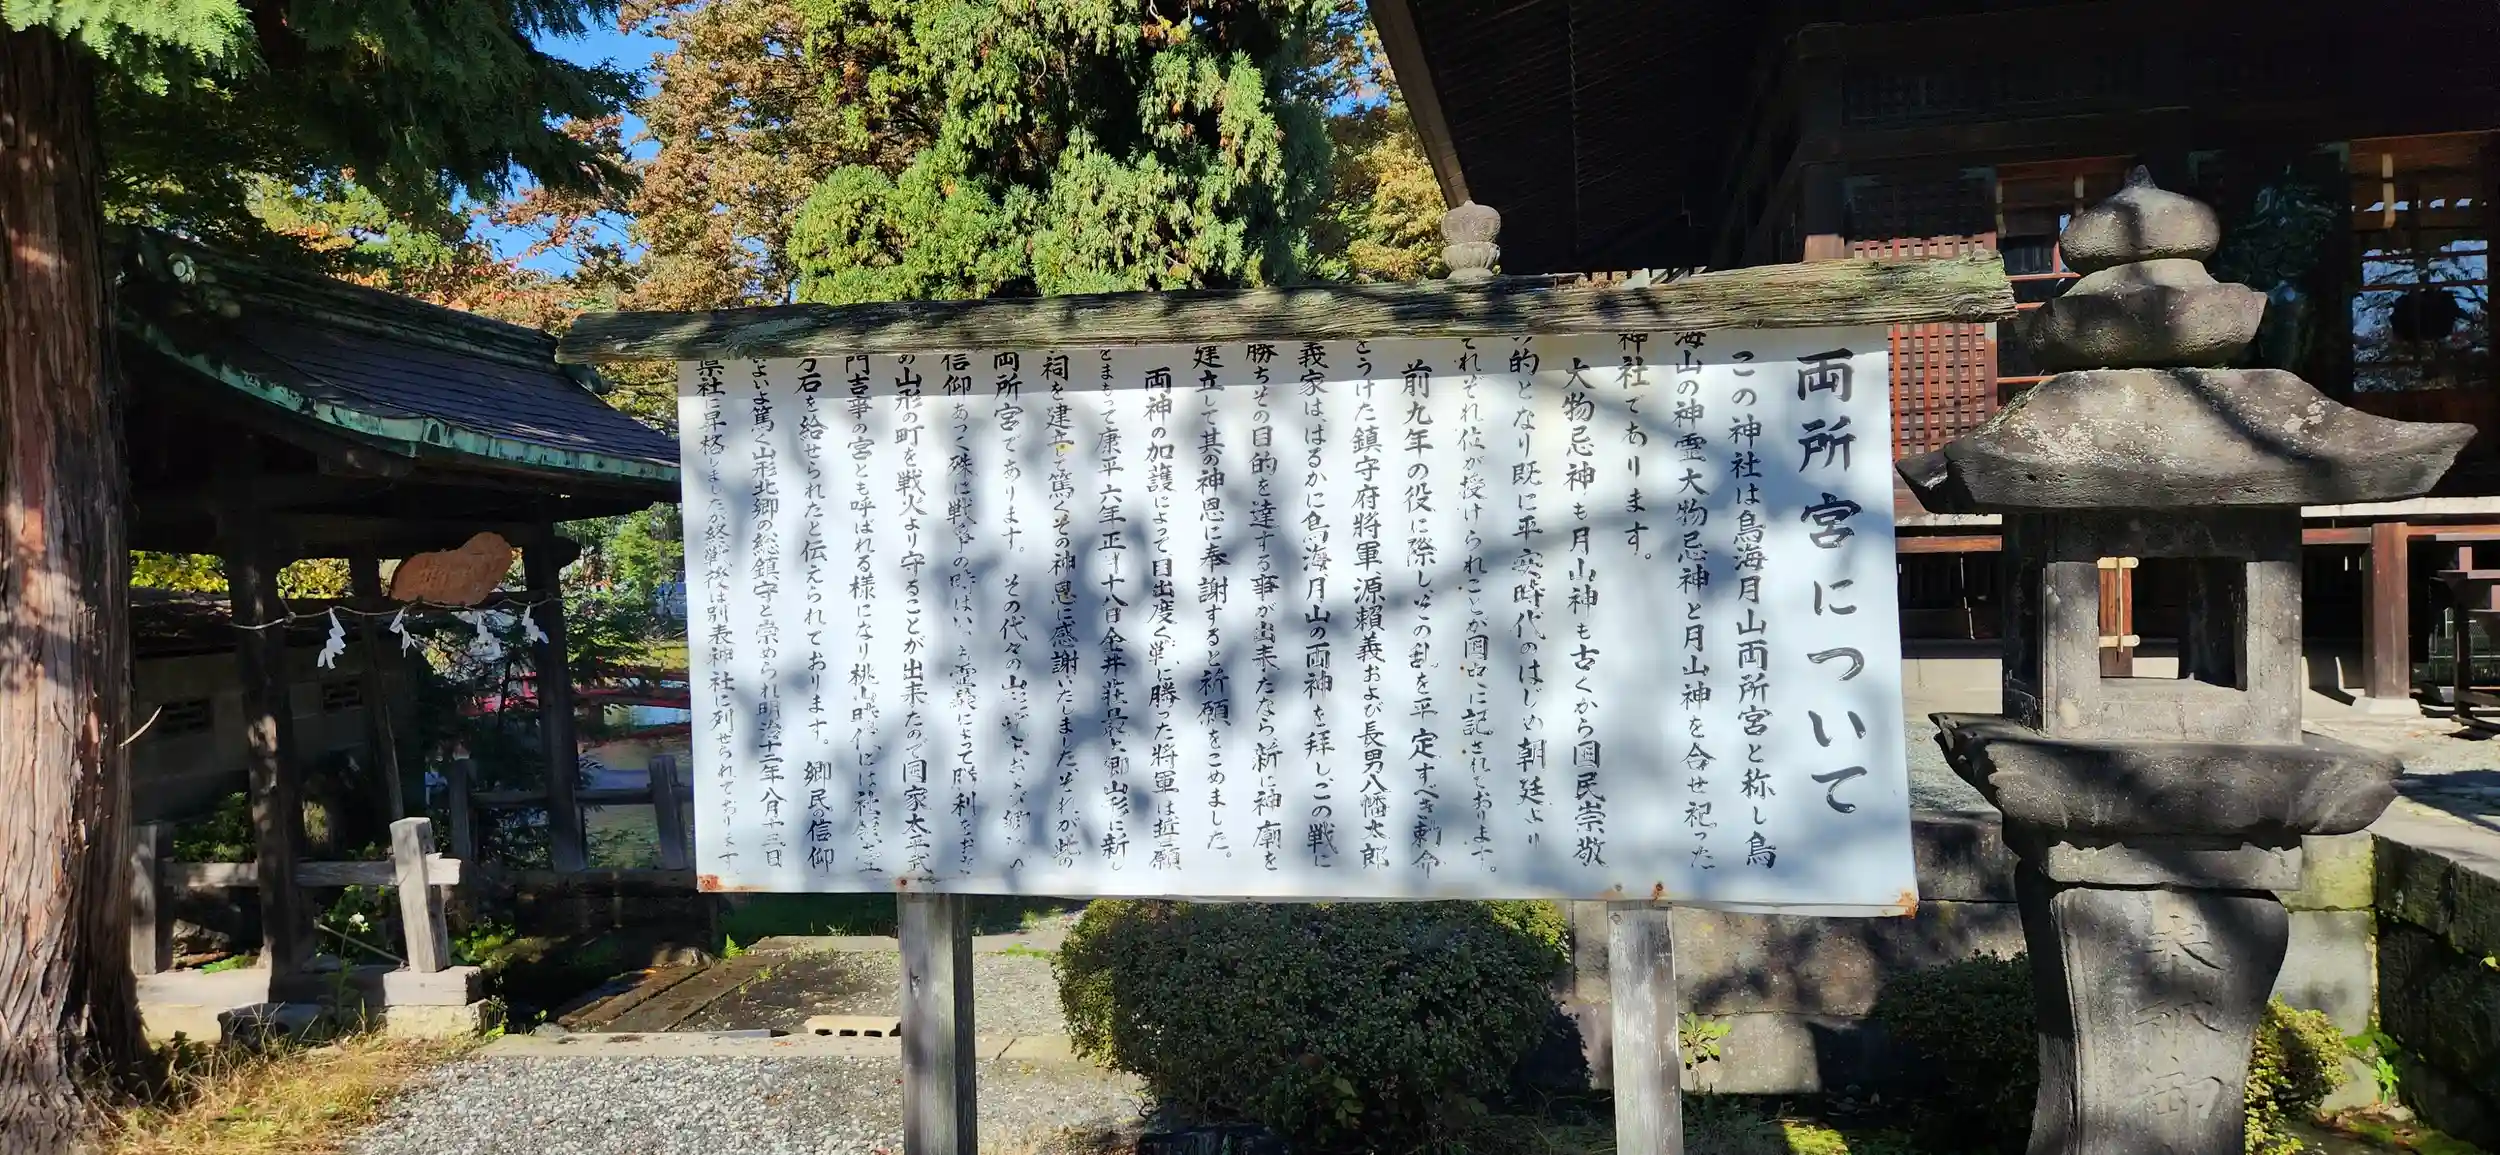 両所宮について
この神社は鳥海月山両所宮と称し鳥
海山の神霊大物忌神と月山神を合せ祀った
神社であります。
大物忌神も月山神も古くから国民崇敬
的となり既に平安時代のはじめ朝廷より
それぞれ位が授けられことが国史に記されております。
前九年の役に際しこの乱を平定すべき勅命
をうけた鎮守府将軍源頼義および長男八幡太郎
義家ははるかに鳥海月山の両神を拝し、この戦に
勝ちその目的を達する事が出来たなら、新に神廟を
建立して其の神恩に奉謝すると祈願をこめました。
両神の加護によって目出度く戦に勝った将軍は誓願
をまもって康平六年正月十八日金井荘最上郷山形に新し
祠を建立して篤くその神恩に感謝いたしました、それが此の
両所宮であります。その代々の山形
信仰あつく殊に戦争の時は 霊験によって勝利を
め山形の町を戦火より守ることが出来たので国家太平武
門吉事の宮とも呼ばれる様になり桃山時代には社領
万石を給せられたと伝えられております。郷民の信仰
いよいよ篤く山形北郷の総鎮守と崇められ明治十二年八月十三日
県社に昇格しましたが終戦後は別表神社に列せられております。
奉献